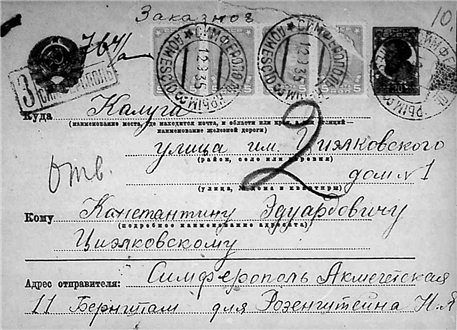 Заказное
10.
764/а
З СИМФЕРОПОЛЬ
СИМФЕРОПОЛЬ
12 9 35
5
2
Куда Калуга
(наименование места, где находится почта, и области или края, а для станций
наименование железной дороги)
Отв.
улица им. Циялковского
(район, село или деревня)
дом № 1
(улица, № дома и квартиры)
Кому Канстантину Эдуардовичу
(подробное наименование адресата)
Циялковскому
Адрес отправителя: Симферополь Акмечетская
11 Бернштам для Розенштейна И.Я